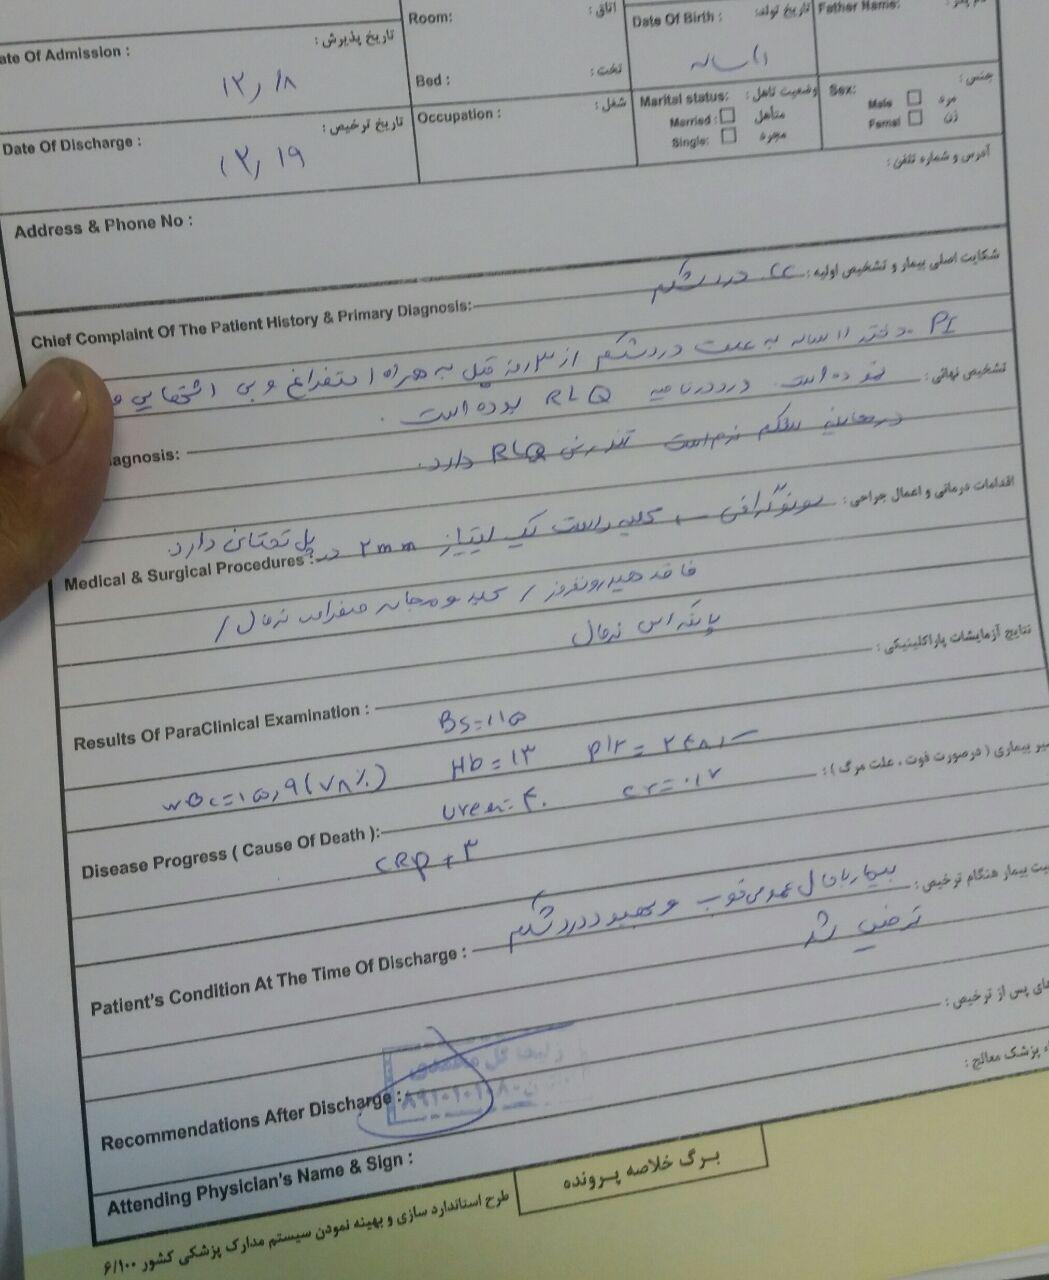 Room:
اتاق :
Date Of Birth :
تاریخ تولد:
Father Name:
ate Of Admission :
تاریخ پذیرش :
۱۲/۱۸
Bed :
تخت :
۱۱ ساله
Marital status:
وضعیت تاهل :
Sex:
جنس :
Married :
متأهل
Male
مرد
Single:
مجرد
Femal
زن
Date Of Discharge :
تاریخ ترخیص :
۱۲/۱۹
Occupation :
شغل :
Address & Phone No :
آدرس و شماره تلفن :
Chief Complaint Of The Patient History & Primary Diagnosis:
شکایت اصلی بیمار و تشخیص اولیه :
CC درد شکم
PI دختر ۱۱ ساله به علت درد شکم از ۳ روز قبل به همراه استفراغ و بی اشتهایی و
agnosis:
تشخیص نهائی :
درد در ناحیه RLQ بوده است .
در معاینه شکم نرم است تندرنس RLQ دارد.
Medical & Surgical Procedures :
اقدامات درمانی و اعمال جراحی :
سونوگرافی کلیه راست یک لیتیاز ۲ mm در پل تحتانی دارد
فاقد هیدرونفروز / کبد و مجاری صفراوی نرمال /
پانکراس نرمال
Results Of ParaClinical Examination :
نتایج آزمایشات پاراکلینیکی :
BS=۱۱۵
WBC=۱۵,۹(۷۸٪)
Hb=۱۳
Plt=
Disease Progress ( Cause Of Death ):
سیر بیماری ( درصورت فوت ، علت مرگ ) :
Urea=۴۰
Cr=۰/۷
CRP + ۳
Patient's Condition At The Time Of Discharge :
یت بیمار هنگام ترخیص :
بیمار با حال عمومی خوب و بهبود درد شکم
ترخیص شد
Recommendations After Discharge :
های پس از ترخیص :
Attending Physician's Name & Sign :
پزشک معالج :
برگ خلاصه پرونده
طرح استاندارد سازی و بهینه نمودن سیستم مدارک پزشکی کشور ۶/۱۰۰